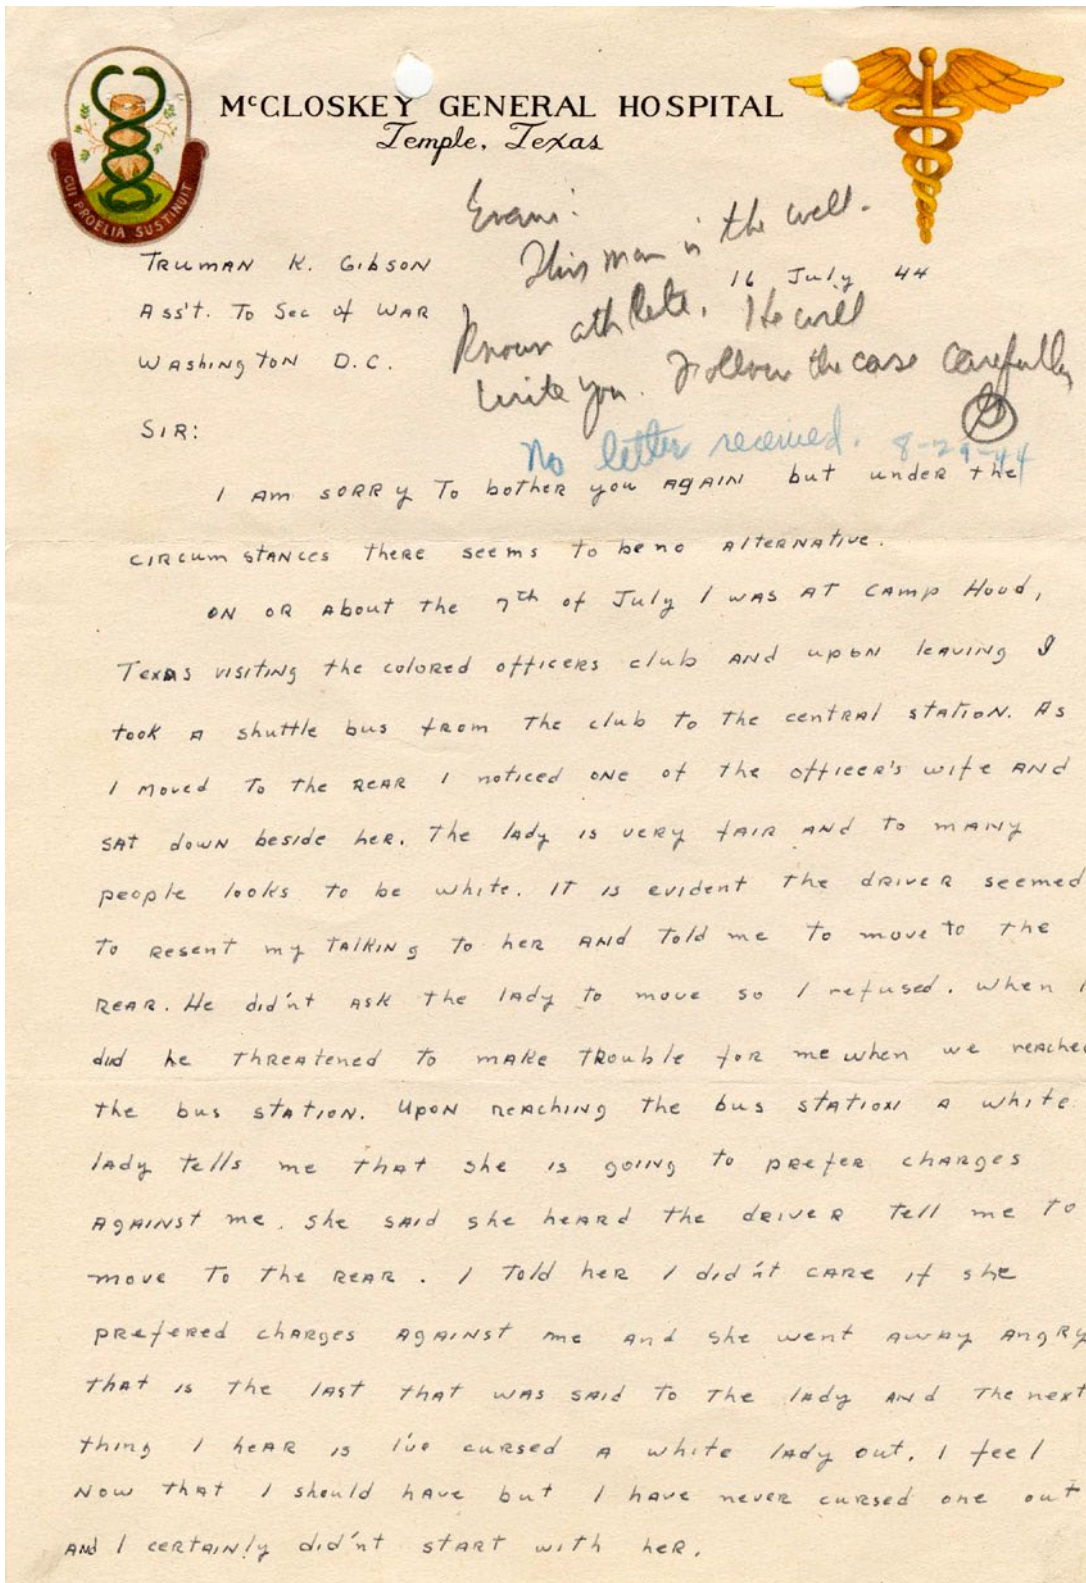 McCLOSKEY GENERAL HOSPITAL
Temple, Texas
CUI PROELIA SUSTINUIT
Evans:
This man is the well-
known athlete. He will
write you. Follow the case carefully
G
No letter received. 8-29-44
TRUMAN K. GIBSON
16 July 44
Ass't. To Sec of WAR
WAshington D.C.
SIR:
I am sorry to bother you again but under the
circumstances there seems to be no alternative.
On or about the 7th of July I was at Camp Hood,
Texas visiting the colored officers club and upon leaving I
took a shuttle bus from the club to the central station. As
I moved to the rear I noticed one of the officer's wife and
sat down beside her. The lady is very fair and to many
people looks to be white. It is evident the driver seemed
to resent my talking to her and told me to move to the
rear. He did'nt ask the lady to move so I refused. When I
did he threatened to make trouble for me when we reached
the bus station. Upon reaching the bus station a white
lady tells me that she is going to prefer charges
against me. She said she heard the driver tell me to
move to the rear. I told her I did'nt care if she
prefered charges against me and she went away angry
that is the last that was said to the lady and the next
thing I hear is I've cursed a white lady out. I feel
now that I should have but I have never cursed one out
and I certainly did'nt start with her.